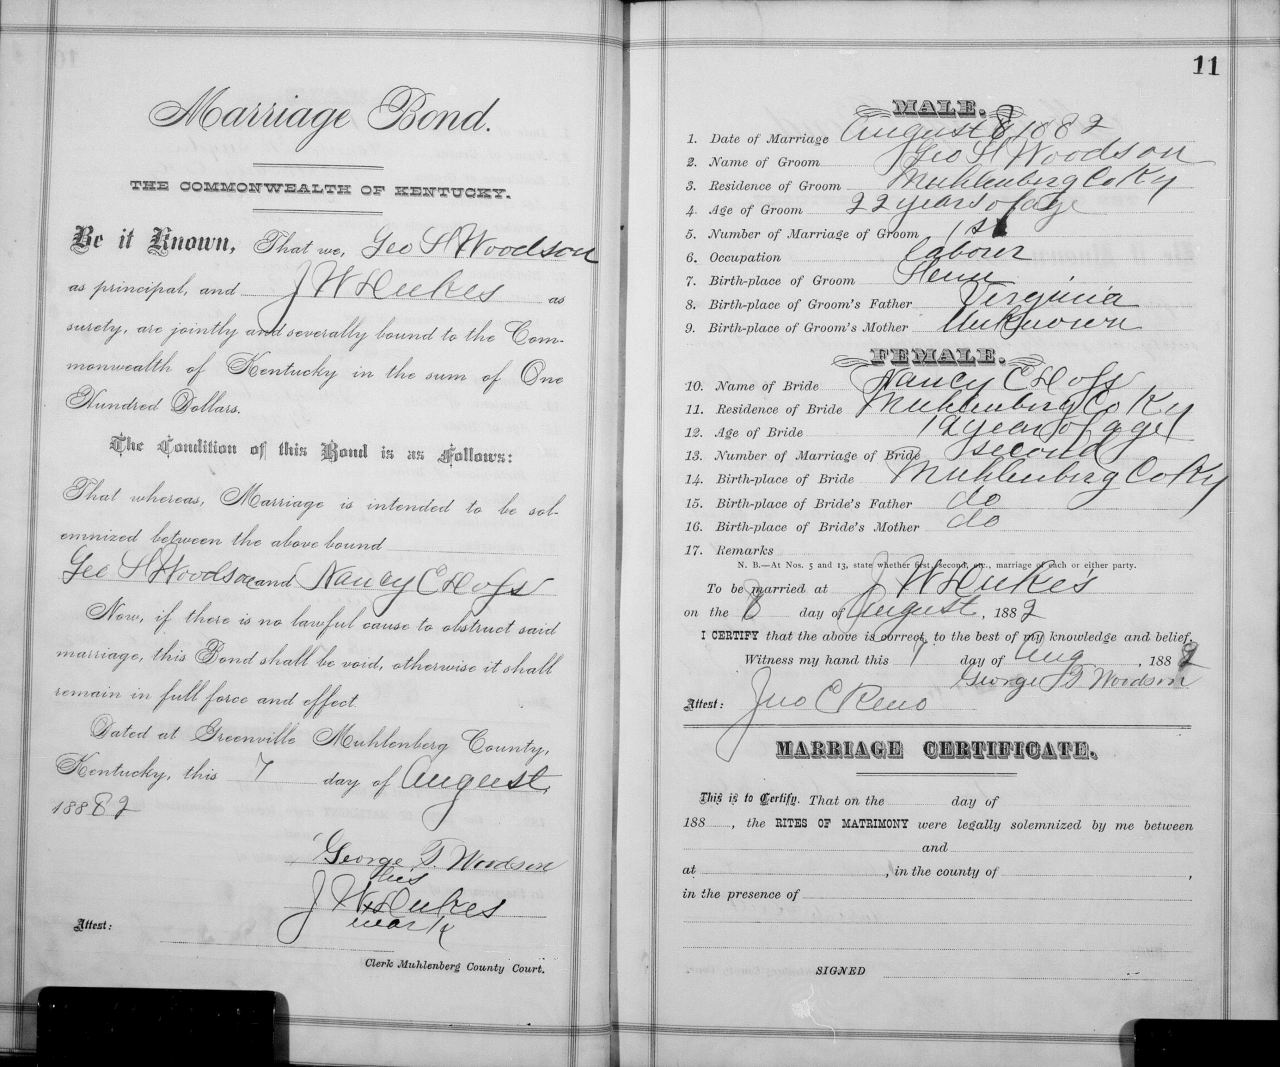 Marriage Bond.
THE COMMONWEALTH OF KENTUCKY.
Be it Known, That we, Geo S Woodson
as principal, and J W Dukes as
surety, are jointly and severally bound to the Com-
monwealth of Kentucky in the sum of One
Hundred Dollars.
The Condition of this Bond is as Follows:
That whereas, Marriage is intended to be sol-
emnized between the above bound
Geo S Woodson and Nancy C
Now, if there is no lawful cause to obstruct said
marriage, this Bond shall be void, otherwise it shall
remain in full force and effect
Dated at Greenville Muhlenberg County,
Kentucky, this 7 day of August,
18882
George T. Woodson
his
J W x Dukes
mark
Attest:
Clerk Muhlenberg County Court.
11
MALE.
1. Date of Marriage August 8 1882
2. Name of Groom Geo S Woodson
3. Residence of Groom Muhlenberg Co Ky
4. Age of Groom 22 years of age
5. Number of Marriage of Groom 1st
6. Occupation labour
7. Birth-place of Groom Tenn
8. Birth-place of Groom's Father Virginia
9. Birth-place of Groom's Mother Unknown
FEMALE.
10. Name of Bride Nancy C
11. Residence of Bride Muhlenberg Co Ky
12. Age of Bride 19 years of age
13. Number of Marriage of Bride second
14. Birth-place of Bride Muhlenberg Co Ky
15. Birth-place of Bride's Father do
16. Birth-place of Bride's Mother do
17. Remarks
N. B.—At Nos. 5 and 13, state whether first, second, etc., marriage of each or either party.
To be married at J W Dukes
on the 8 day of August, 1882
I CERTIFY that the above is correct, to the best of my knowledge and belief.
Witness my hand this 7 day of Aug, 1882
George T Woodson
Attest: Jno C Reno
MARRIAGE CERTIFICATE.
This is to Certify. That on the day of
188 , the RITES OF MATRIMONY were legally solemnized by me between
and
at , in the county of ,
in the presence of
SIGNED